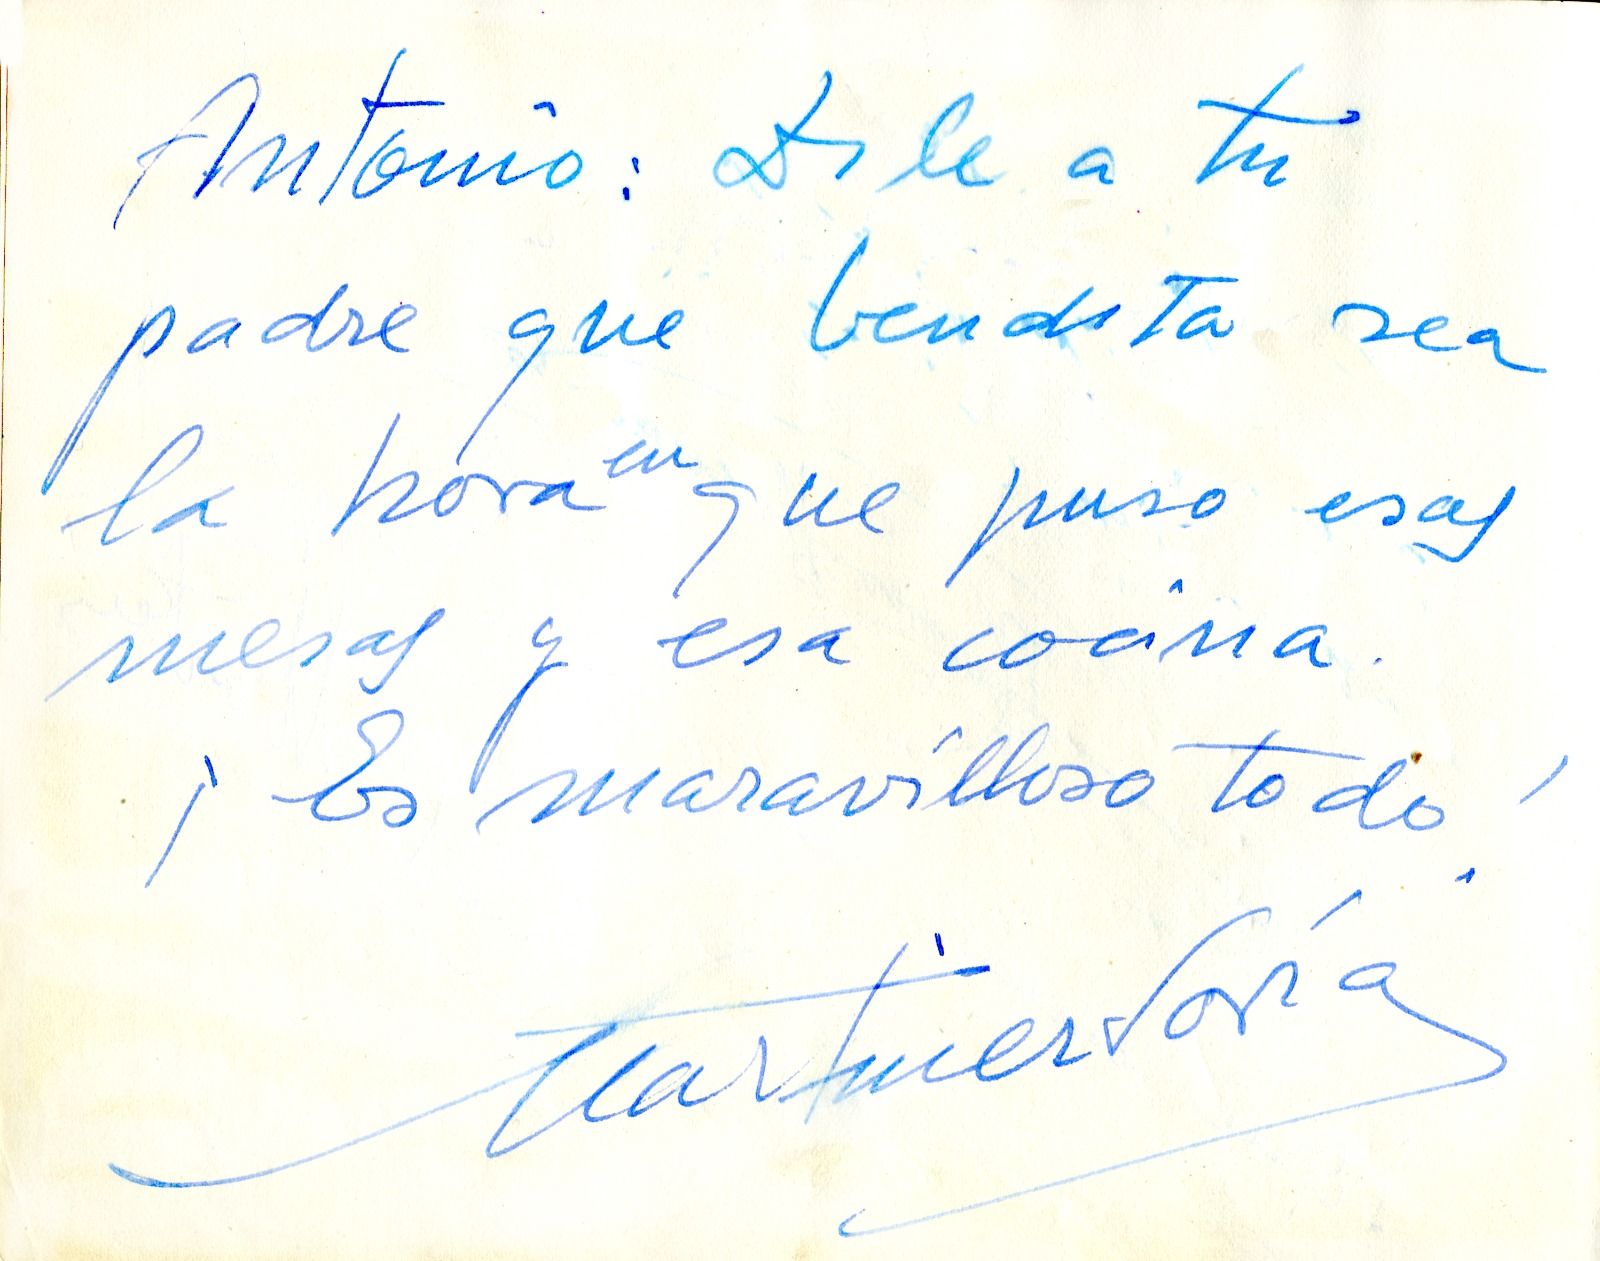 Antonio: Dile a tu
padre que bendita sea
la hora en que puso esas
mesas y esa cocina.
¡Es maravilloso todo!
Martínez Soria